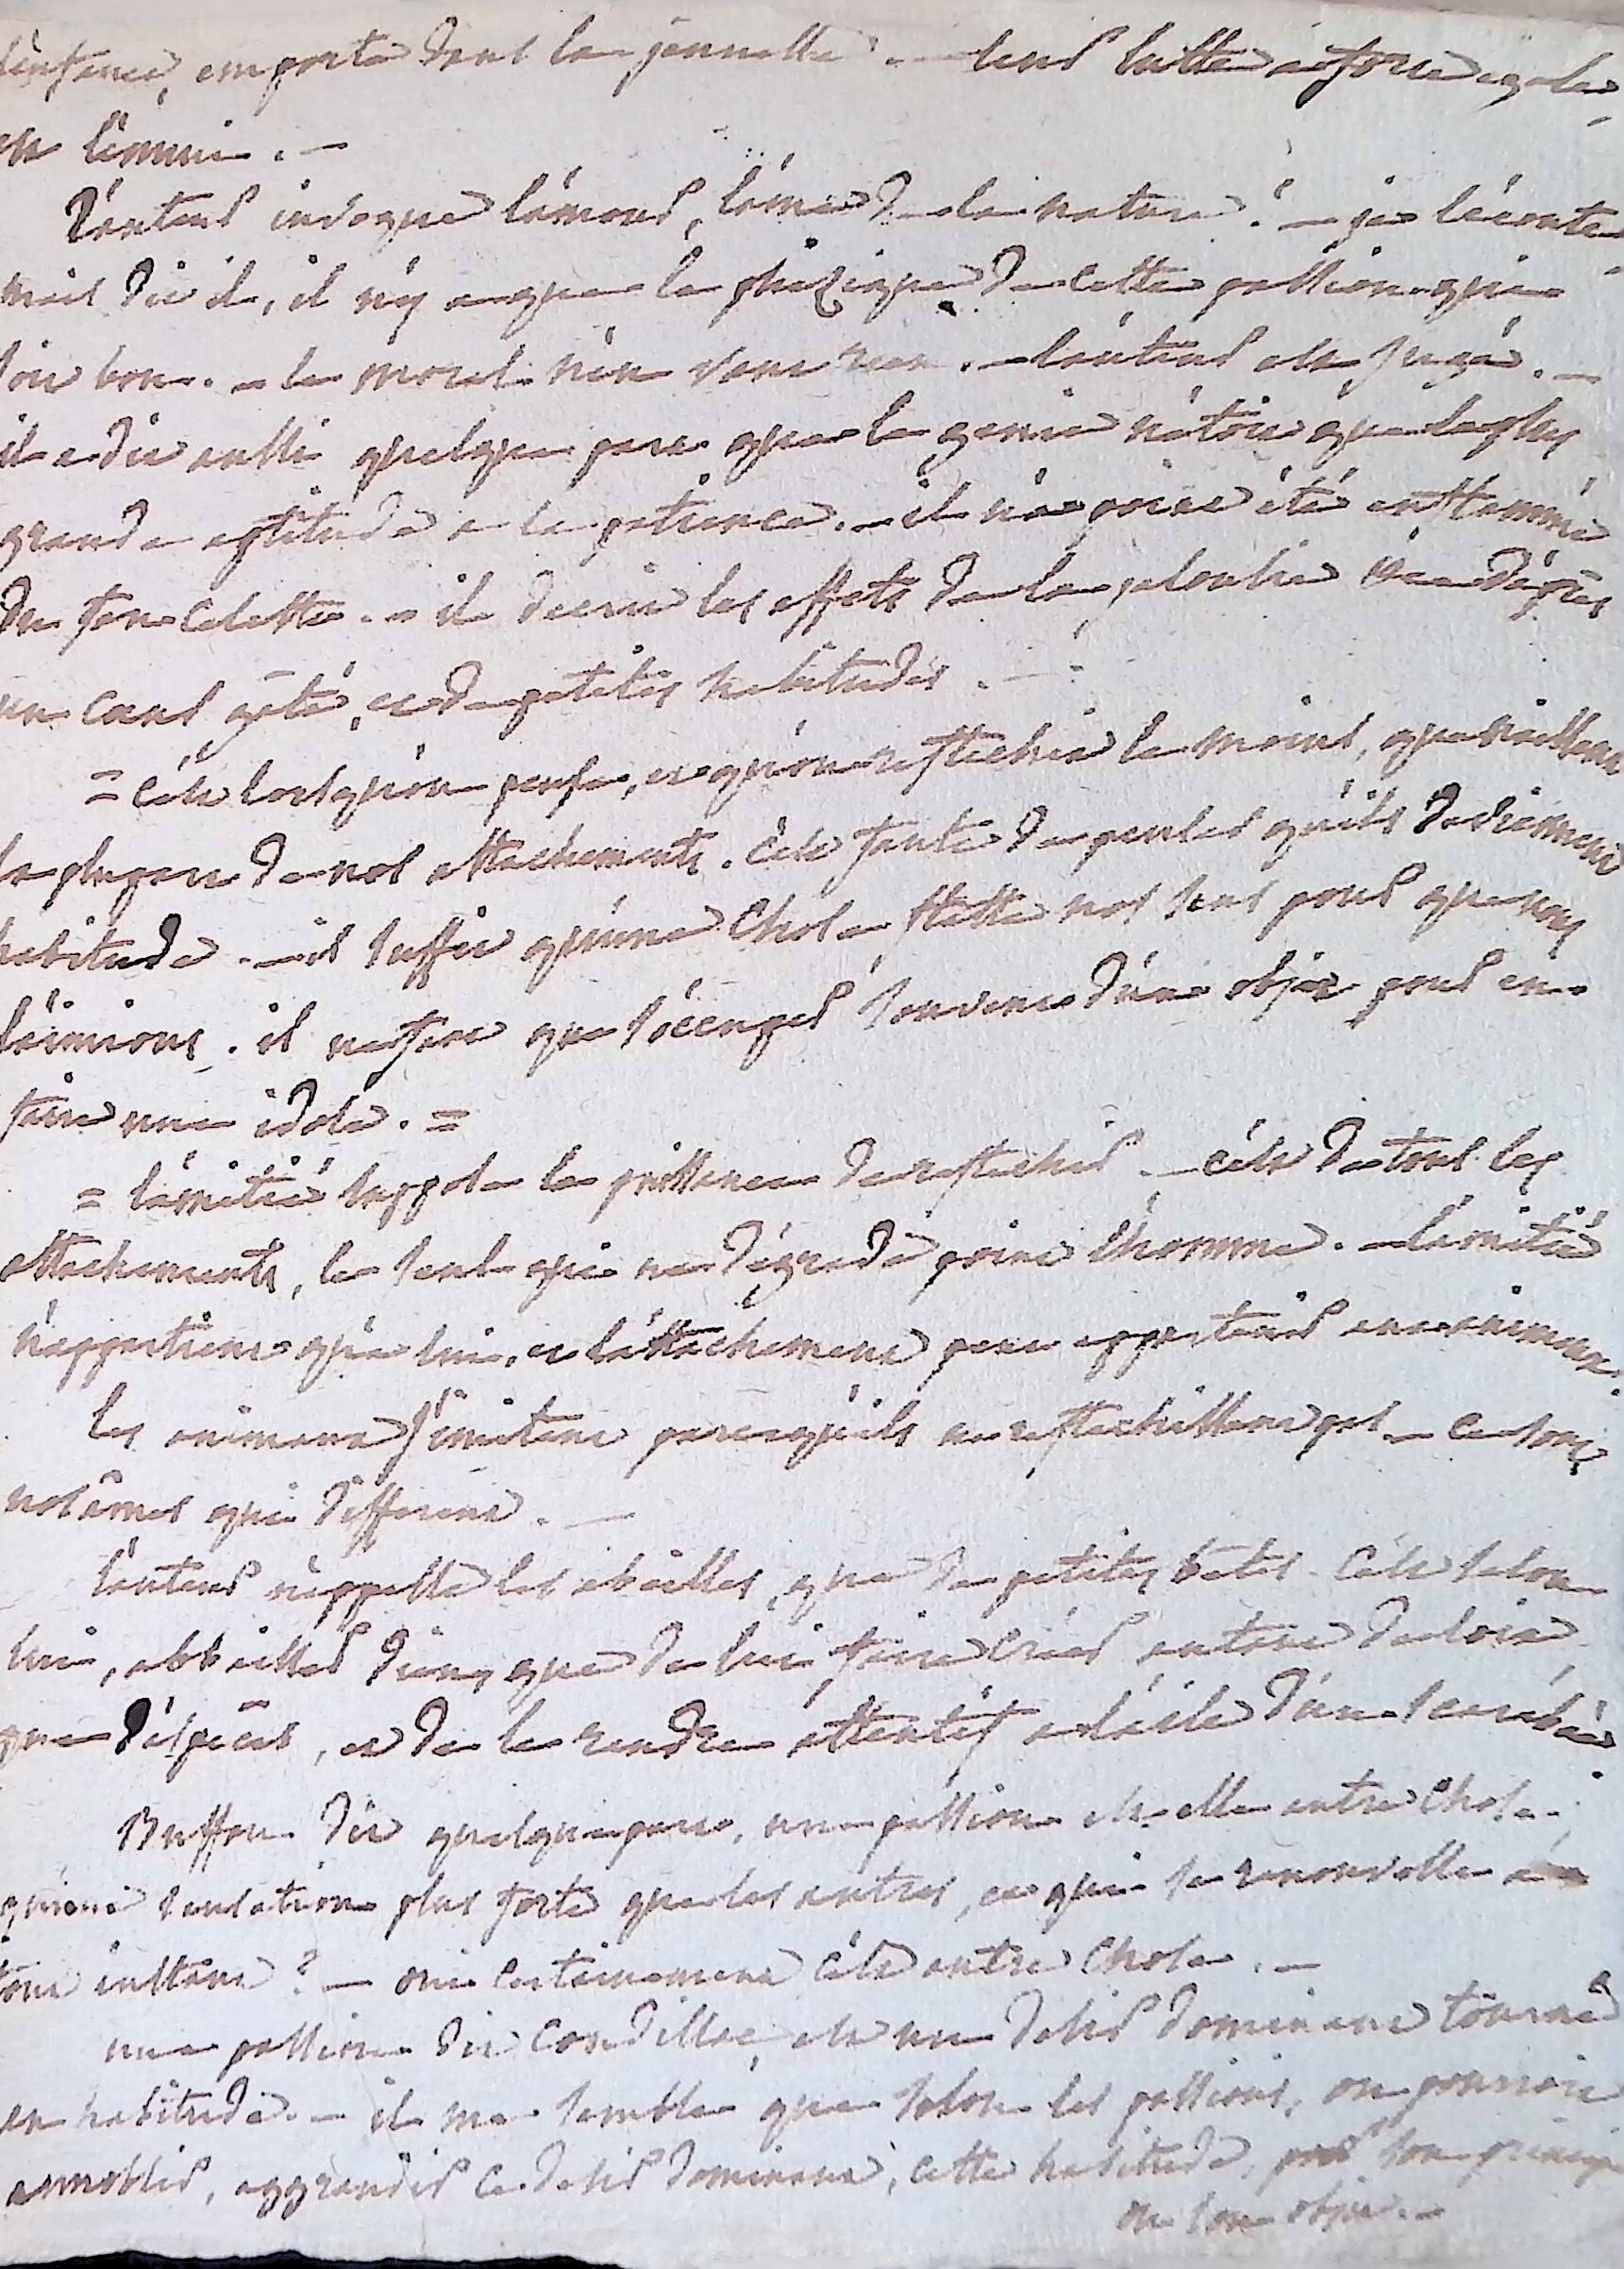 l'enfance, emporte dans la jeunesse. — leur lutte a force egale
est l'ennui. —
L'auteur invoque l'amour, l'ame de la nature! — je l'écoute
mais dit il, il n'y a que le phizique de cette passion qui
soit bon. — le moral n'en vaut rien. — l'auteur est jugé. —
il a dit aussi quelque part que le genie n'etoit que la plus
grande aptitude a la patience. — il n'a point été enflammé
du feu celeste. — il decrit les effets de la jalousie
un cœur gâté, et de petites habitudes. —
= c'est lorsqu'on pense, et qu'on reflechit le moins, que naissent
la plupart de nos attachements. c'est faute de penser qu'ils deviennent
habitude. — il suffit qu'une chose flatte nos sens pour que nous
l'aimions. il ne faut que s'occuper souvent d'un objet pour en
faire une idole. =
= l'amitié suppose la puissance de reflechir. — c'est de tous les
attachements, le seul qui ne dégrade point l'homme. — l'amitié
n'appartient qu'a lui, et l'attachement peut appartenir aux animaux.
les animaux s'imitent parcequ'ils ne reflechissent pas. — ce sont
nos âmes qui different. —
l'auteur n'appelle les abeilles, que de petites betes. c'est selon
lui, abbaisser dieu, que de lui faire créer autant de loix
que d'espèces, et de le rendre attentif a l'aile d'un scarabée
Buffon dit quelque part, une passion est elle autre chose
qu'une sensation plus forte que les autres, et qui se renouvelle a
tout instant? — oui certainement c'est autre chose. —
une passion dit Condillac, est un desir dominant tourné
en habitude. — il me semble que selon les passions, on pourroit
annoblir, aggrandir ce desir dominant, cette habitude, par son principe
ou son objet. —